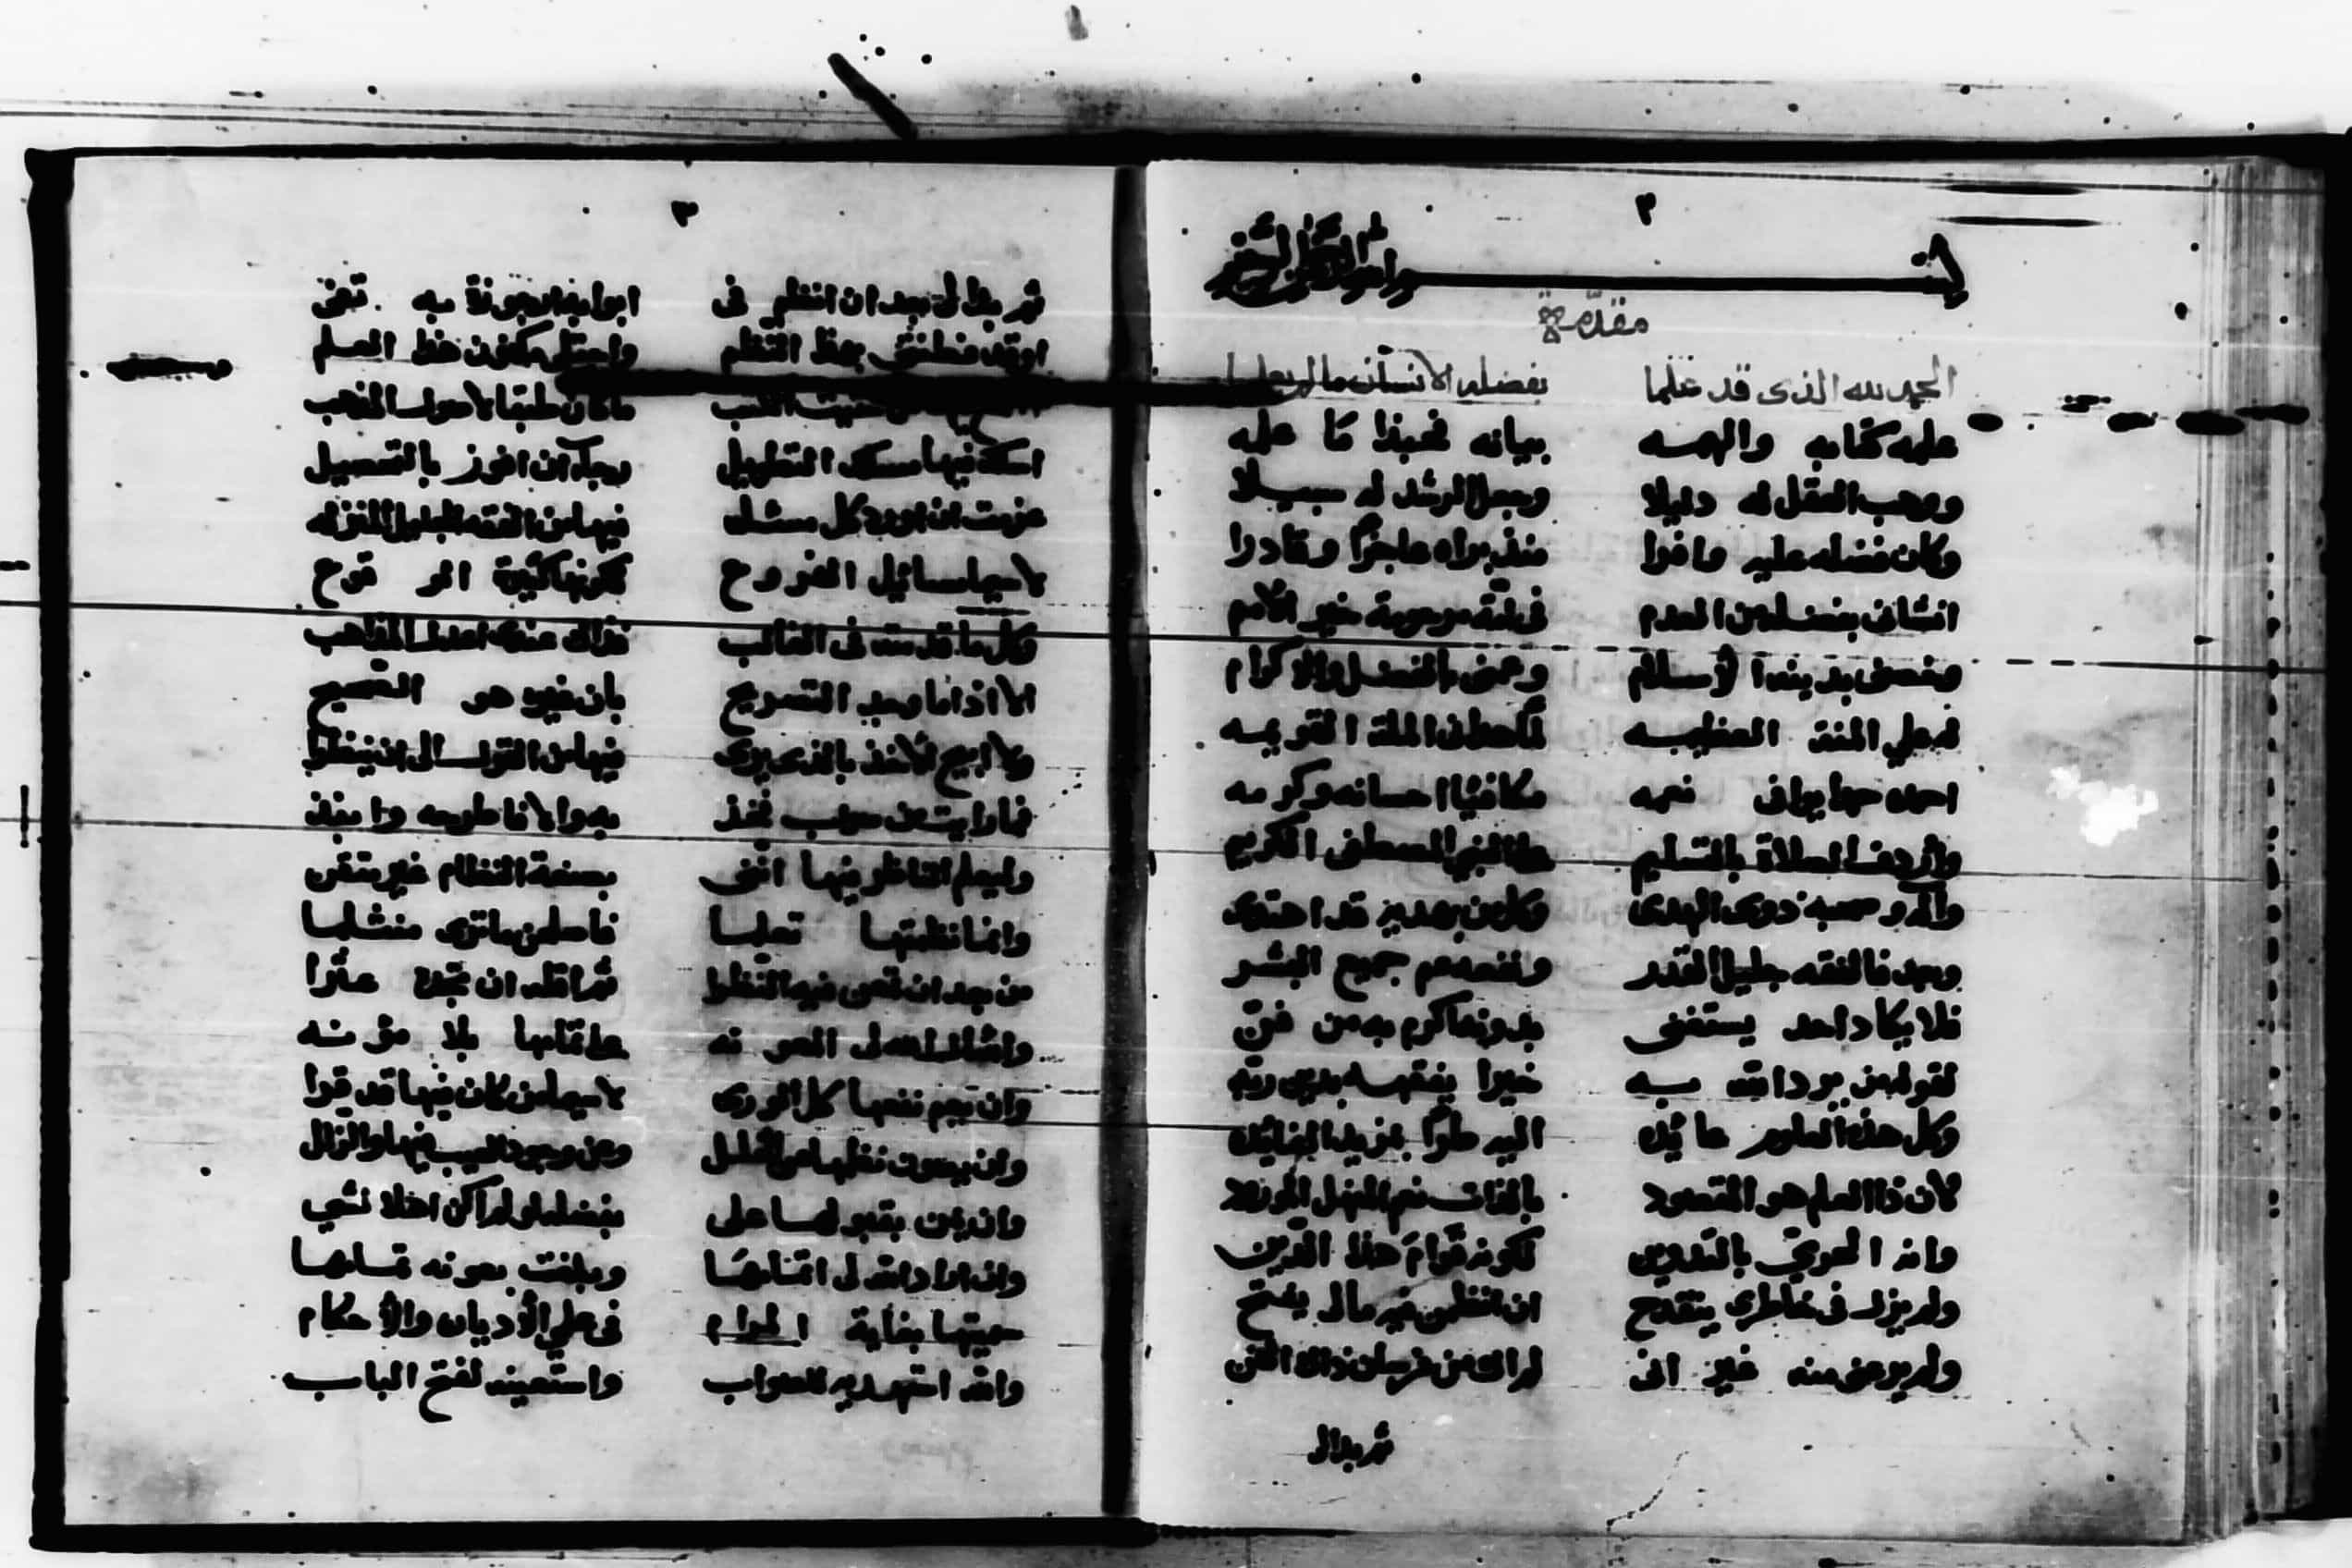 ٢
بسم الله الرحمن الرحيم
مقدّمة
الحمد لله الذى قد علما بفضله الانسان ما لم يعلما
علمه كتابه والهمه بيانه فحبذا ما علمه
ووهب العقل له دليلا وجعل الرشد له سبيلا
وكان فضله عليه وافرا منذ براه عاجزًا وقادرا
انشانى بفضله من العدم فى ملة مرحومة خير الامم
وخصنى بدينه الاسلام وعمنى بالفضل والاكرام
له على المنة العظيمه الملة القويمه
احمده حمدا يوافى نعمه مكافئا احسانه وكرمه
واردف الصلاة بالتسليم على النبى المصطفى الكريم
واله وصحبه ذوى الهدى وكل من بهديه قد اهتدى
وبعد فالفقه جليل القدر ونفعه عم جميع البشر
فلا يكاد احد يستغنى بدونه اكرم به من فنّ
لقوله من يرد الله به خيرا يفقهه بدين ربه
وكل هذه العلوم عائده اليه طرًا بمزيد الفائده
لان ذا العلم هو المقصود بالذات نعم المنهل المورود
وانه الحرىّ بالتدوين لكونه قوام هذا الدّين
ولم يزل فى خاطرى ينقدح ان انظمن فيه ما لى يفتح
ولم يرعنى منه غير انى لم اك من فرسان ذاك الفن
ثم بدا لى
٣
ثم بدا لى بعد ان انظم فى ابوابه ارجوزة به تفى
النظم العلم
ما كان طبقا لاصول المذهب
اسلك فيها مسلك التسهيل رجاء ان افوز بالتحصيل
عزمت ان اورد كل مسئله فيها من الفقه
لا سيما مسائل الفروع لكونها كثيرة الوقوع
وكل ما قدمته فى الغالب فذاك عندى اعدل المذاهب
الا اذا ما وجد التصريح بان غيره هو الصحيح
ولا ابيح الاخذ بالذى يرى فيها من القول الى ان ينظرا
فما رايت من صواب فخذ به والا فاطرحه وانبذ
وليعلم الناظر فيها اننى بصنعة النظام غير متقن
وانما نظمتها تعلما
من بعد ان تمعن فيه النظرا
واسال الله لى المعونه على تمامها بلا مؤنه
وان يعم نفعها كل الورى لا سيما من كان فيها قد قرا
وان يصون نظمها عن الخلل وعن وجود العيب فيها والزلل
وان يمن بقبولها على بفضله
وان اراد الله لى اتمامها وبلغت بعونه تمامها
سميتها بغاية المرام فى علمى الاديان والاحكام
والله استهديه للصواب واستعينه لفتح الباب